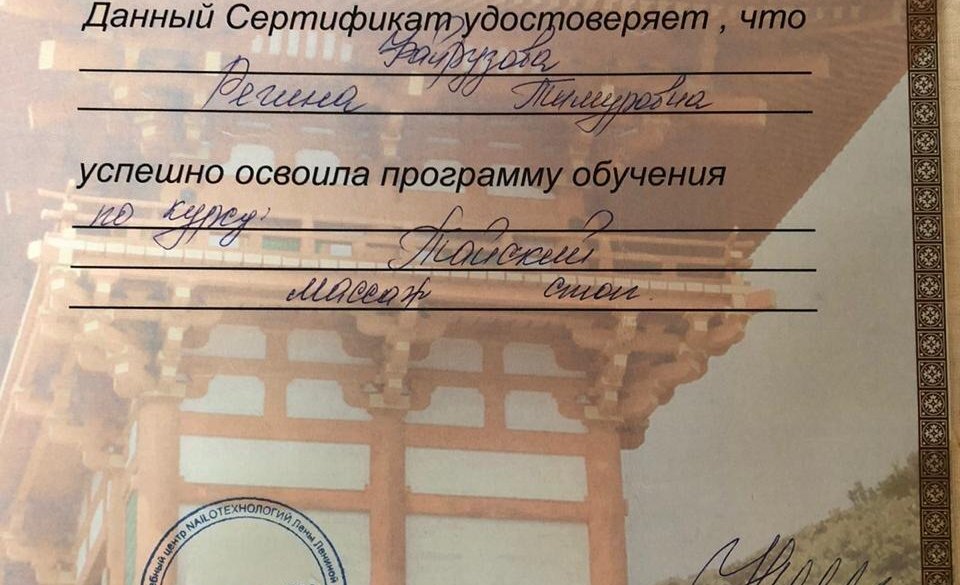 Данный Сертификат удостоверяет , что
Файрузова
Регина Тимуровна
успешно освоила программу обучения
по курсу:
Тайский
массаж стоп.
бный центр NAILОТЕХНОЛОГИЙ Лены Лениной